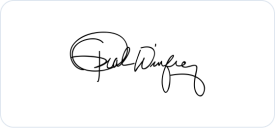 Oprah Winfrey